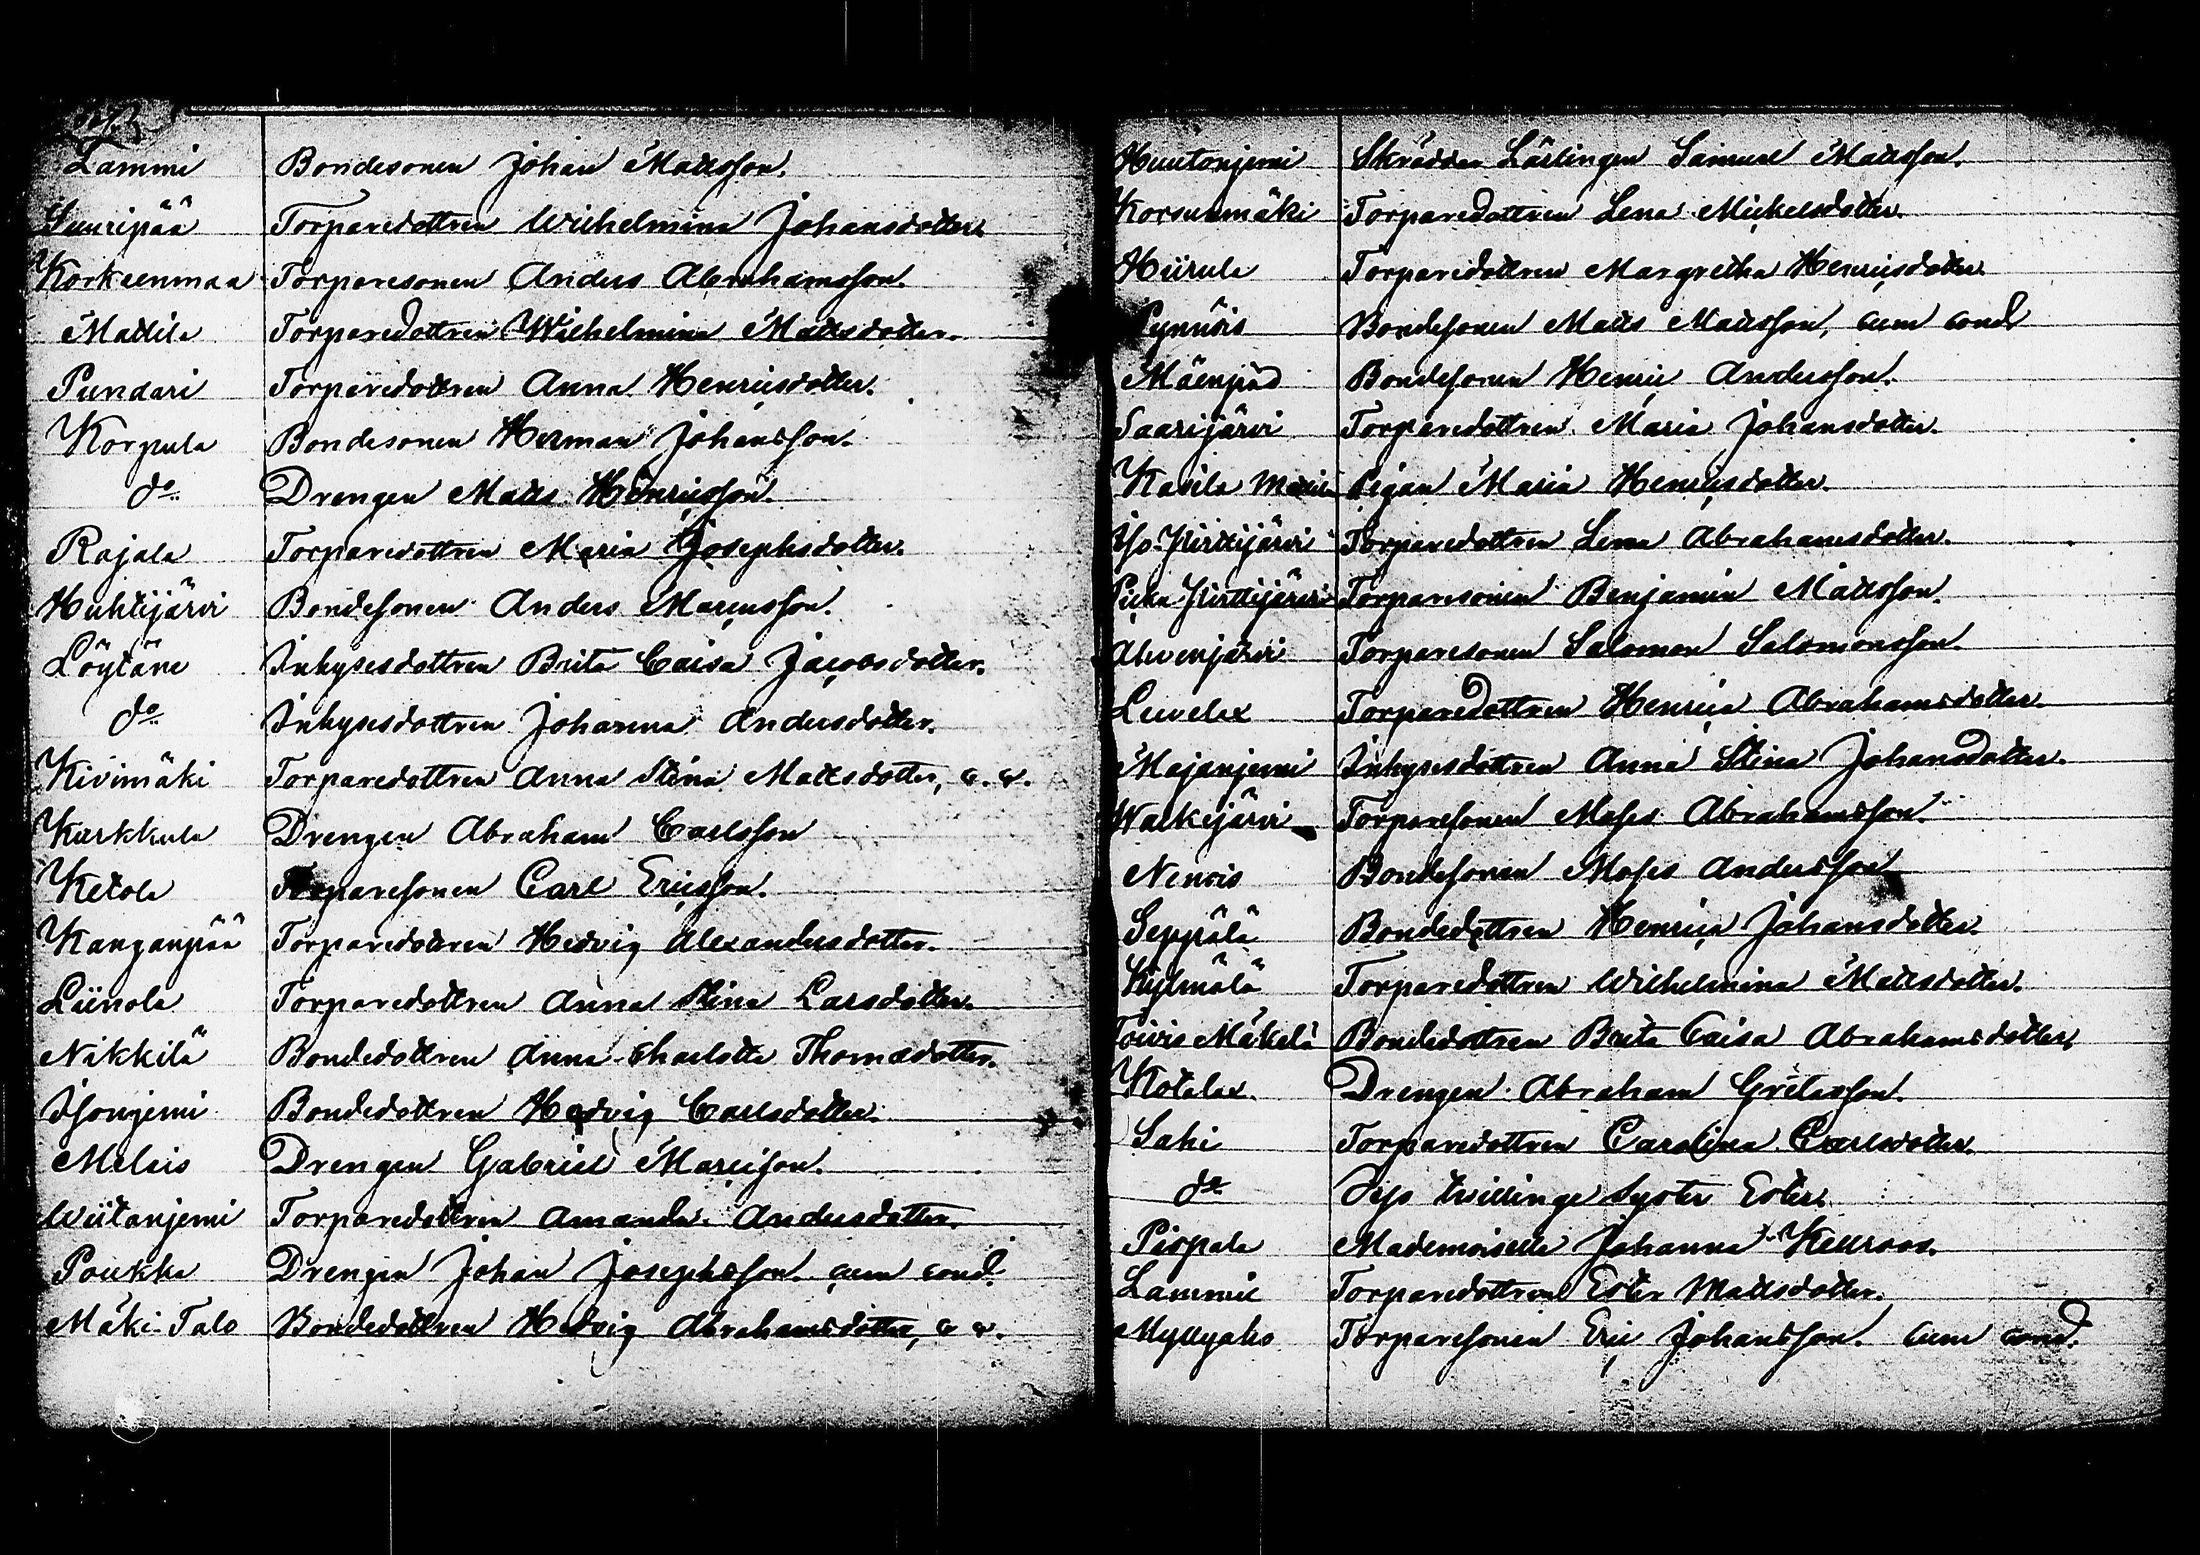 Lammi Bondesonen Johan Mattsson.
Suuripää Torparedottren Wilhelmina Johansdotter.
Korkeenmaa Torparesonen Anders Abrahamsson.
Mattila Torparedottren Wilhelmina Mattsdotter.
Pundari Torparedottren Anna Henricsdotter.
Korpula Bondesonen Herman Johansson.
do Drengen Matts Henricsson.
Rajala Torparedottren Maria Josephsdotter.
Huhtijärvi Bondesonen Anders Marcusson.
Löytäne Inhysesdottren Brita Caisa Jacobsdotter.
do Inhysesdottren Johanna Andersdotter.
Kivimäki Torparedottren Anna Stina Mattsdotter, c. c.
Karkkula Drengen Abraham Carlsson
Ketola Torparesonen Carl Ericsson.
Kanganpää Torparedottren Hedvig Alexandersdotter.
Liinola Torparedottren Anna Stina Larsdotter.
Nikkilä Bondedottren Anna Charlotta Thomasdotter.
Isonjemi Bondedottren Hedvig Carlsdotter.
Melais Drengen Gabriel Marcisson.
Wiitanjemi Torparedottren Amanda Andersdotter.
Poukka Drengen Johan Josephsson. cum cond.
Mäki-Talo Bondedottren Hedvig Abrahamsdotter, c c.
Huutonjemi Skrädder Lärlingen Samuel Mattsson.
Korsunmäki Torparedottren Lena Michelsdotter.
Hiirula Torparedottren Margretha Henricsdotter.
Pynnöis Bondesonen Matts Mattsson, cum cond
Mäenpää Bondesonen Henric Andersson.
Saarijärvi Torparedottren Maria Johansdotter.
Kasila Pigan Maria Henricsdotter.
Iso-Hirttijärvi Torparedottren Lena Abrahamsdotter.
Picku-Hirttijärvi Torparesonen Benjamin Mattsson.
Ahvenjärvi Torparesonen Salomon Salomonsson.
Luvelax Torparedottren Henrica Abrahamsdotter.
Majanjemi Inhysesdottren Anna Stina Johansdotter.
Walkijärvi Torparesonen Moses Abrahamsson.
Nenois Bondesonen Moses Andersson
Seppälä Bondedottren Henrica Johansdotter.
Kylmälä Torparedottren Wilhelmina Mattsdotter.
Toivis Mäkelä Bondedottren Brita Caisa Abrahamsdotter.
Kotalax. Drengen Abraham Gretasson.
Saki Torparedottren Carolina Carlsdotter.
do Dess tvillinge Syster Ester.
Pispala Mademoiselle Johanna Keuroos.
Lammie Torparedottren Ester Mattsdotter.
Myllyaho Torparesonen Eric Johansson. cum cond.